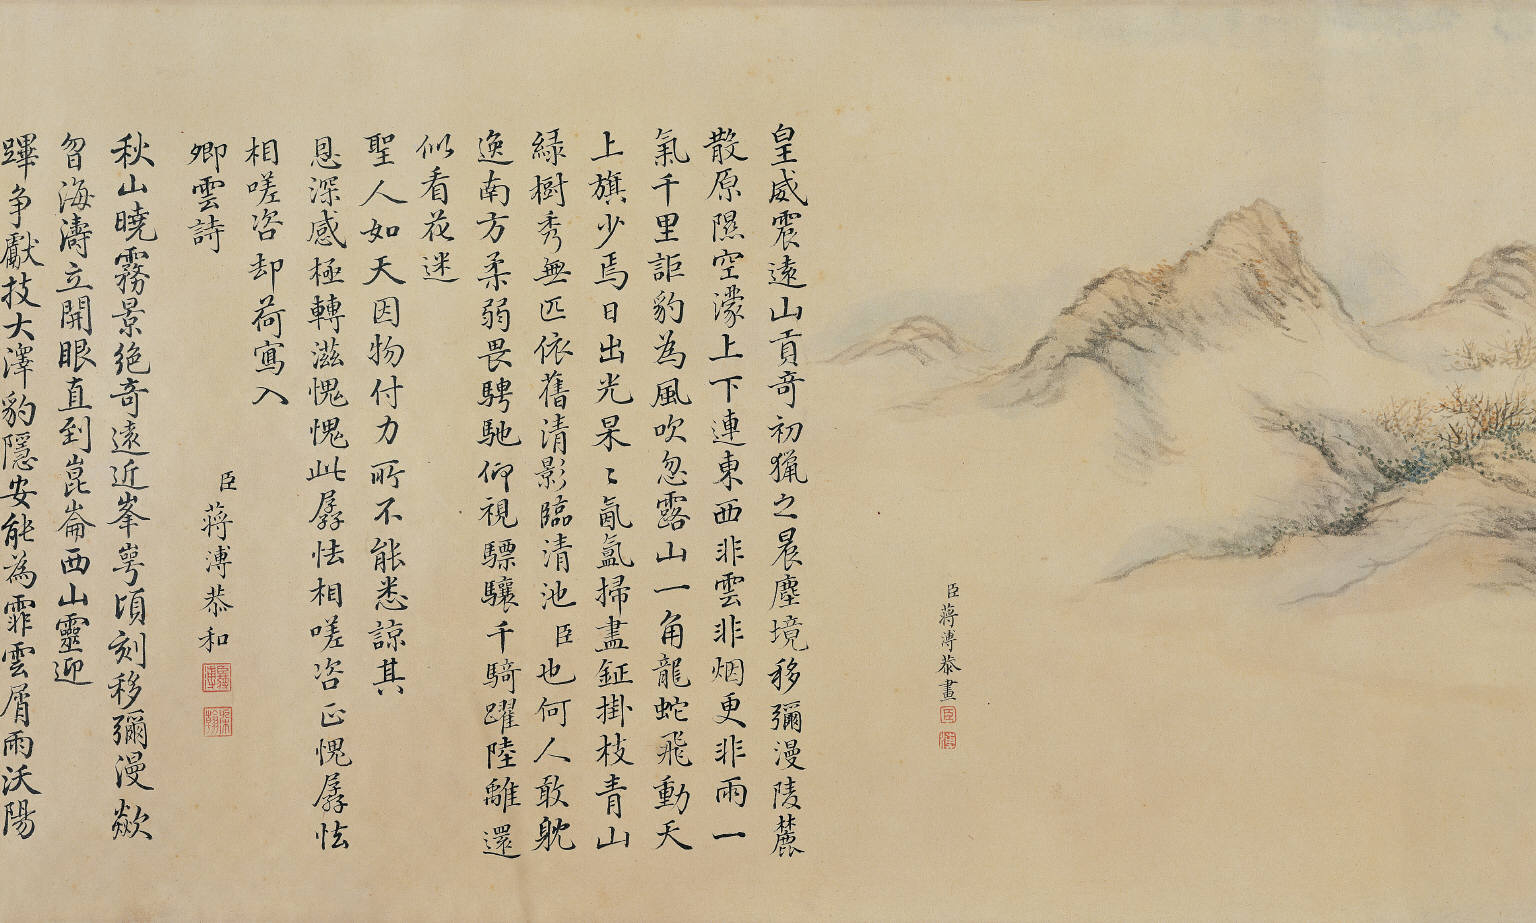 臣蔣溥恭畫
皇威震遠山貢奇初獵之晨塵境移彌漫陵麓
散原隰空濛上下連東西非雲非烟更非雨一
氣千里詎豹為風吹忽露山一角龍蛇飛動天
上旗少焉日出光杲〻氤氳掃盡鉦掛枝青山
綠樹秀無匹依舊清影臨清池臣也何人敢躭
逸南方柔弱畏騁馳仰視驃驤千騎躍陸離還
似看花迷
聖人如天因物付力所不能悉諒其
恩深感極轉滋愧愧此孱怯相嗟咨正愧孱怯
相嗟咨却荷寫入
卿雲詩
臣蔣溥恭和
秋山曉霧景絕奇遠近峯崿頃刻移彌漫歘
曶海濤立開眼直到崑崙西山靈迎
蹕爭獻技大澤豹隱安能為霏雲屑雨沃陽